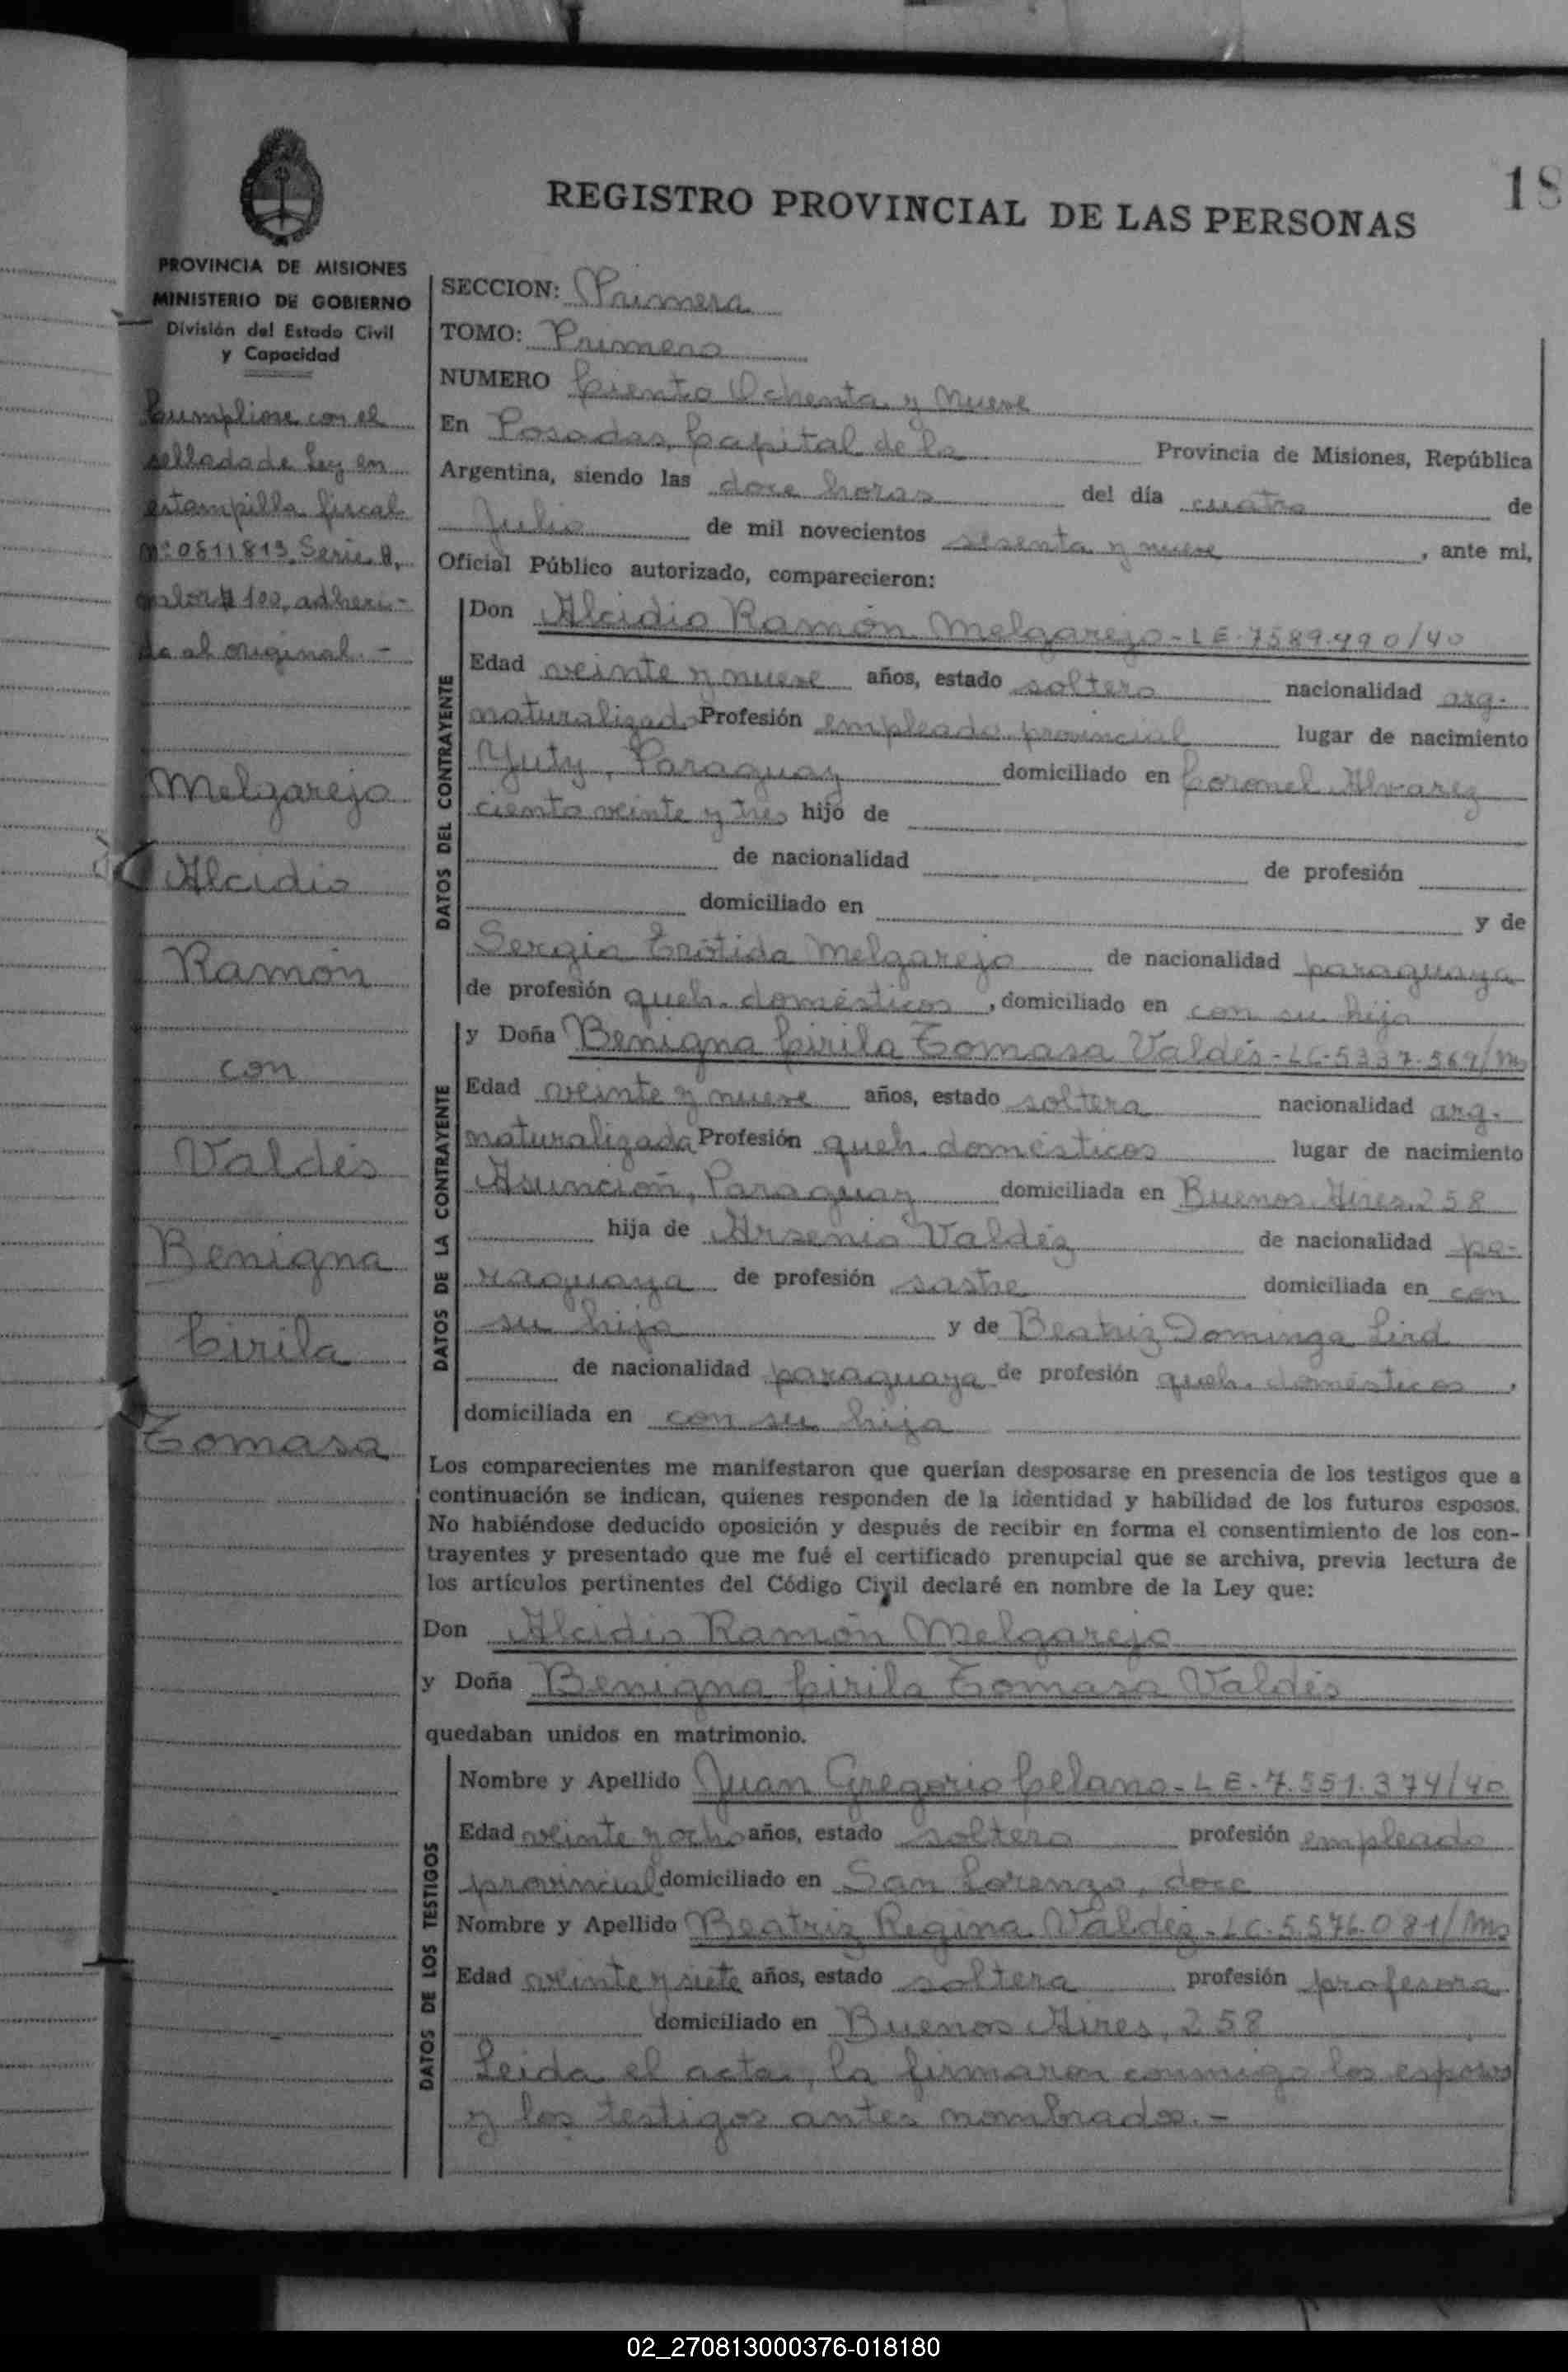 18
REGISTRO PROVINCIAL DE LAS PERSONAS
PROVINCIA DE MISIONES
MINISTERIO DE GOBIERNO
División del Estado Civil
y Capacidad
Cumpliose con el
sellado de Ley en
estampilla fiscal
Nº 0811813 Serie A,
valor $ 100, adheri-
da al original.-
Melgarejo
Alcidio
Ramón
con
Valdés
Benigna
Cirila
Tomasa
SECCION: Primera
TOMO: Primero
NUMERO Ciento Ochenta y Nueve
En Posadas, Capital de la Provincia de Misiones, República
Argentina, siendo las doce horas del día cuatro de
Julio de mil novecientos sesenta y nueve, ante mi,
Oficial Público autorizado, comparecieron:
DATOS DEL CONTRAYENTE
Don Alcidio Ramón Melgarejo - LE. 7589.490/40
Edad veinte y nueve años, estado soltero nacionalidad arg.
naturalizado Profesión empleado provincial lugar de nacimiento
Yuty, Paraguay domiciliado en Coronel Alvarez
ciento veinte y tres hijo de
de nacionalidad de profesión
domiciliado en y de
Sergia Erótida Melgarejo de nacionalidad paraguaya
de profesión queh. domésticos, domiciliado en con su hijo
DATOS DE LA CONTRAYENTE
y Doña Benigna Cirila Tomasa Valdés - LC. 5337.569/Ms
Edad veinte y nueve años, estado soltera nacionalidad arg.
naturalizada Profesión queh. domésticos lugar de nacimiento
Asunción, Paraguay domiciliada en Buenos Aires, 258
hija de Arsenio Valdéz de nacionalidad pa-
raguaya de profesión sastre domiciliada en con
su hija y de Beatriz Dominga Lird
de nacionalidad paraguaya de profesión queh. domésticos,
domiciliada en con su hija
Los comparecientes me manifestaron que querían desposarse en presencia de los testigos que a
continuación se indican, quienes responden de la identidad y habilidad de los futuros esposos.
No habiéndose deducido oposición y después de recibir en forma el consentimiento de los con-
trayentes y presentado que me fué el certificado prenupcial que se archiva, previa lectura de
los artículos pertinentes del Código Civil declaré en nombre de la Ley que:
Don Alcidio Ramón Melgarejo
y Doña Benigna Cirila Tomasa Valdés
quedaban unidos en matrimonio.
DATOS DE LOS TESTIGOS
Nombre y Apellido Juan Gregorio Celano - LE - 7.551.374/40
Edad veinte y ocho años, estado soltero profesión empleado
provincial domiciliado en San Lorenzo, doce
Nombre y Apellido Beatriz Regina Valdéz - LC. 5.576.081/Ms
Edad veinte y siete años, estado soltera profesión profesora
domiciliado en Buenos Aires, 258
Leida el acta, la firmaron conmigo los esposos
y los testigos antes nombrados.-
02_270813000376-018180